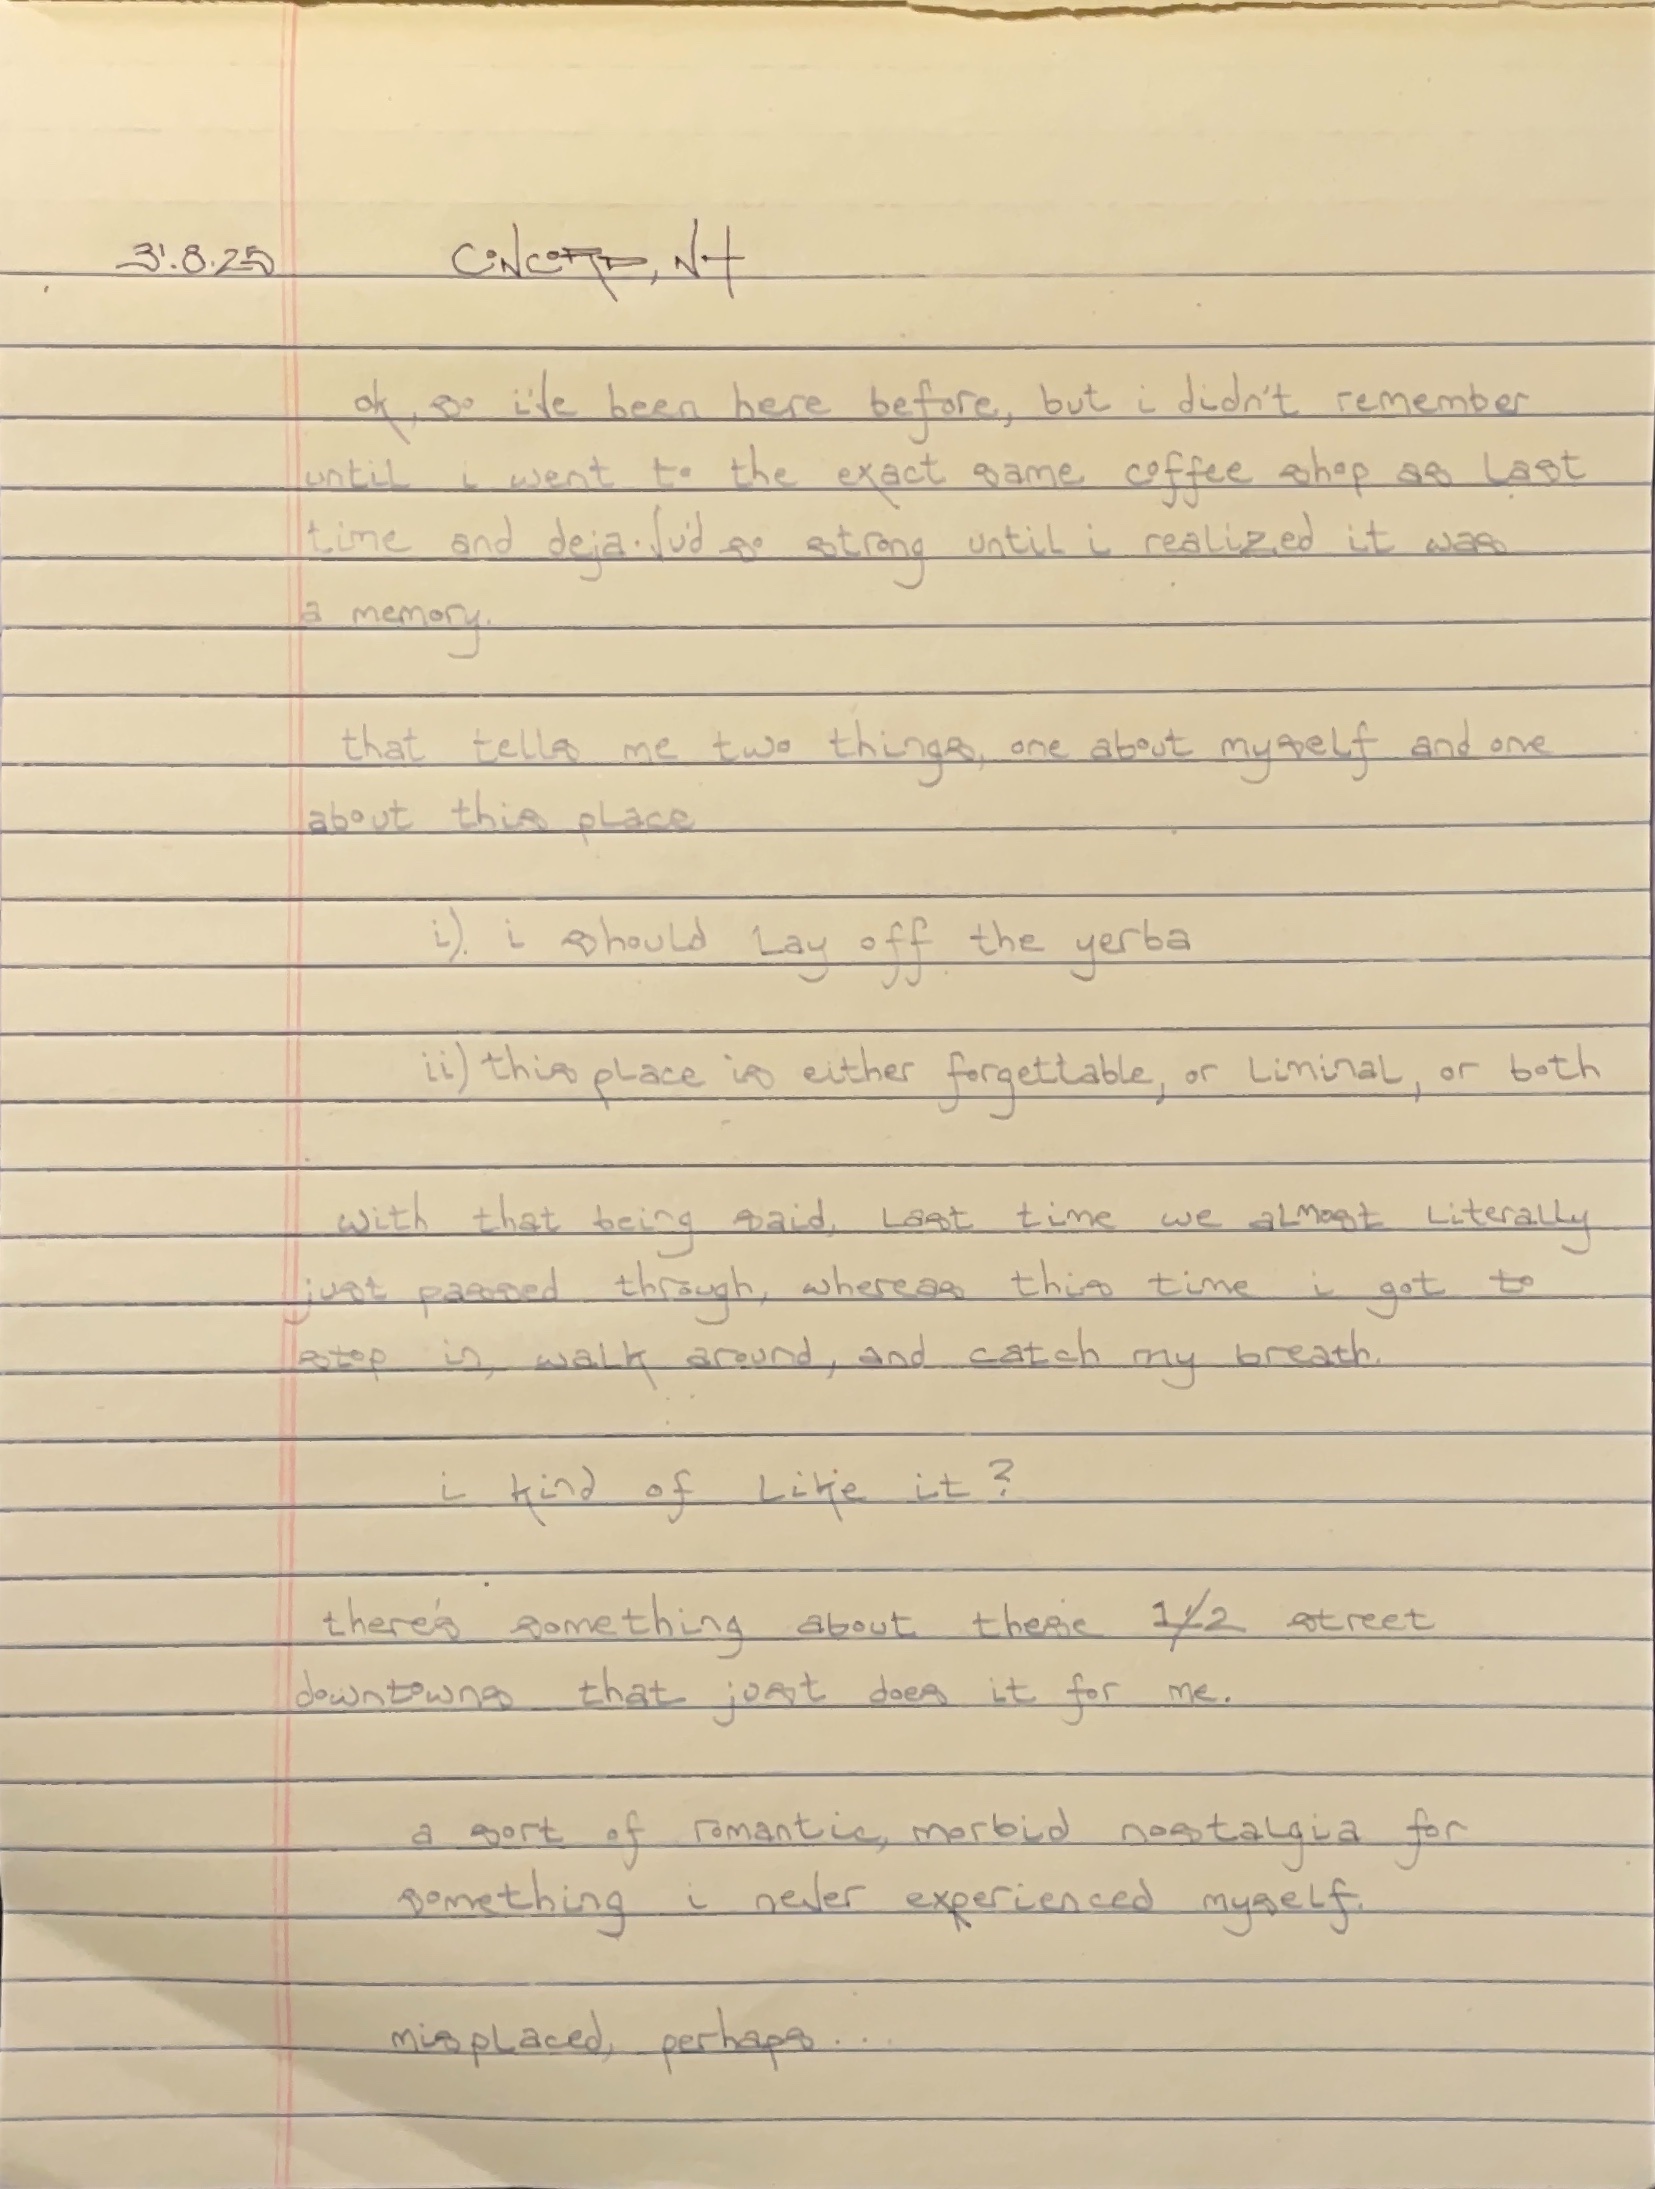 31.8.25 CONCORD, NH
ok, so i've been here before, but i didn't remember
until i went to the exact same coffee shop as last
time and deja-vu'd so strong until i realized it was
a memory.
that tells me two things, one about myself and one
about this place
i). i should lay off the yerba
ii) this place is either forgettable, or liminal, or both
with that being said, last time we almost literally
just passed through, whereas this time i got to
stop in, walk around, and catch my breath.
i kind of like it?
there's something about these 1/2 street
downtowns that just does it for me.
a sort of romantic, morbid nostalgia for
something i never experienced myself.
misplaced, perhaps...